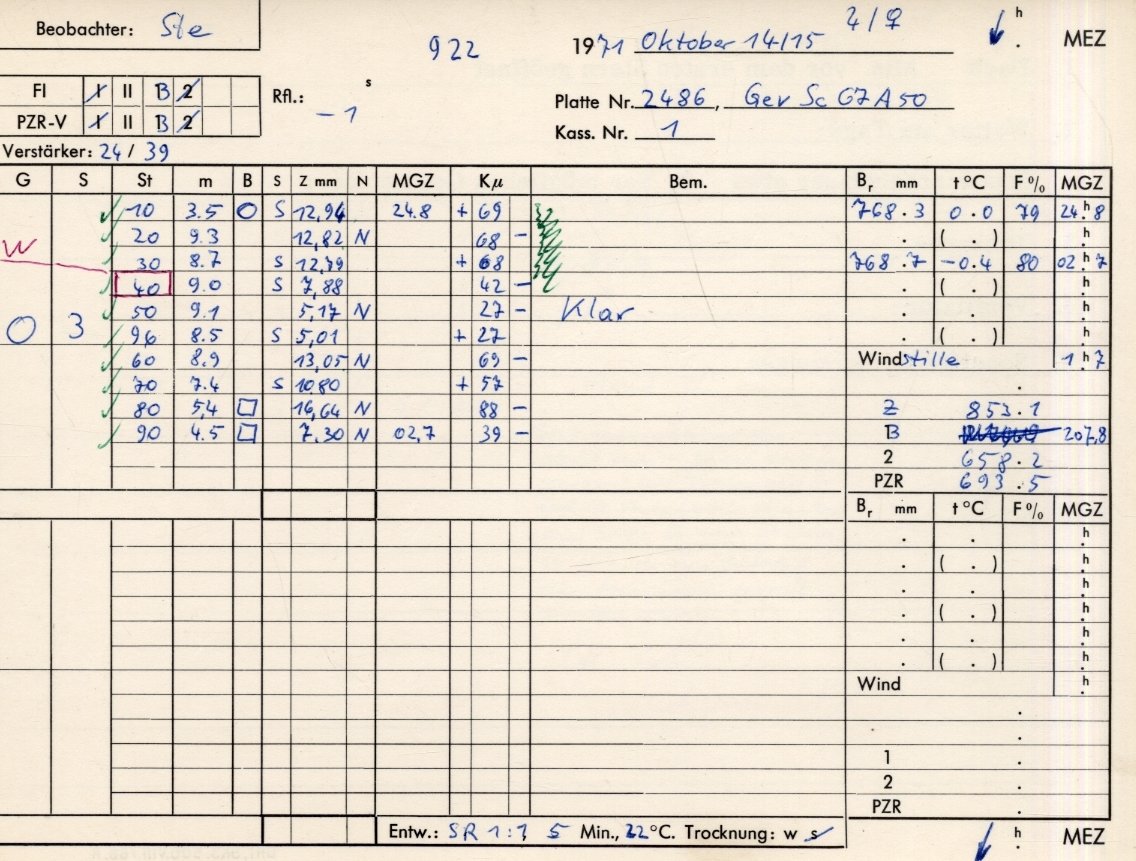 Beobachter: Ste
922
1971 Oktober 14/15 4/♀
h . MEZ
FI I II B 2
PZR-V I II B 2
Rfl.: -1 s
Platte Nr. 2486, Gev Sc G7A50
Kass. Nr. 1
Verstärker: 24 / 39
G S St m B S Z mm N MGZ Kμ Bem. Br mm t°C F% MGZ
10 3.5 O S 12,94 24.8 + 69 768.3 0.0 79 24.h8
20 9.3 12,82 N 68 - . ( . ) h
W 30 8.7 S 12,79 + 68 768.7 -0.4 80 02.h7
40 9.0 S 7,88 42 - . ( . ) h
50 9.1 5,17 N 27 - Klar . . h
O 3 96 8.5 S 5,01 + 27 . ( . ) h
60 8.9 13,05 N 69 - Windstille 1h7
70 7.4 S 10,80 + 57 .
80 5,4 □ 16,64 N 88 - Z 853.1
90 4.5 □ 7.30 N 02,7 39 - B 207,8
2 658.2
PZR 693.5
Br mm t°C F% MGZ
. . h
. ( . ) h
. . h
. ( . ) h
. . h
. ( . ) h
Wind h
.
.
1 .
2 .
PZR .
Entw.: SR 1:7 5 Min., 22°C. Trocknung: w s
h . MEZ